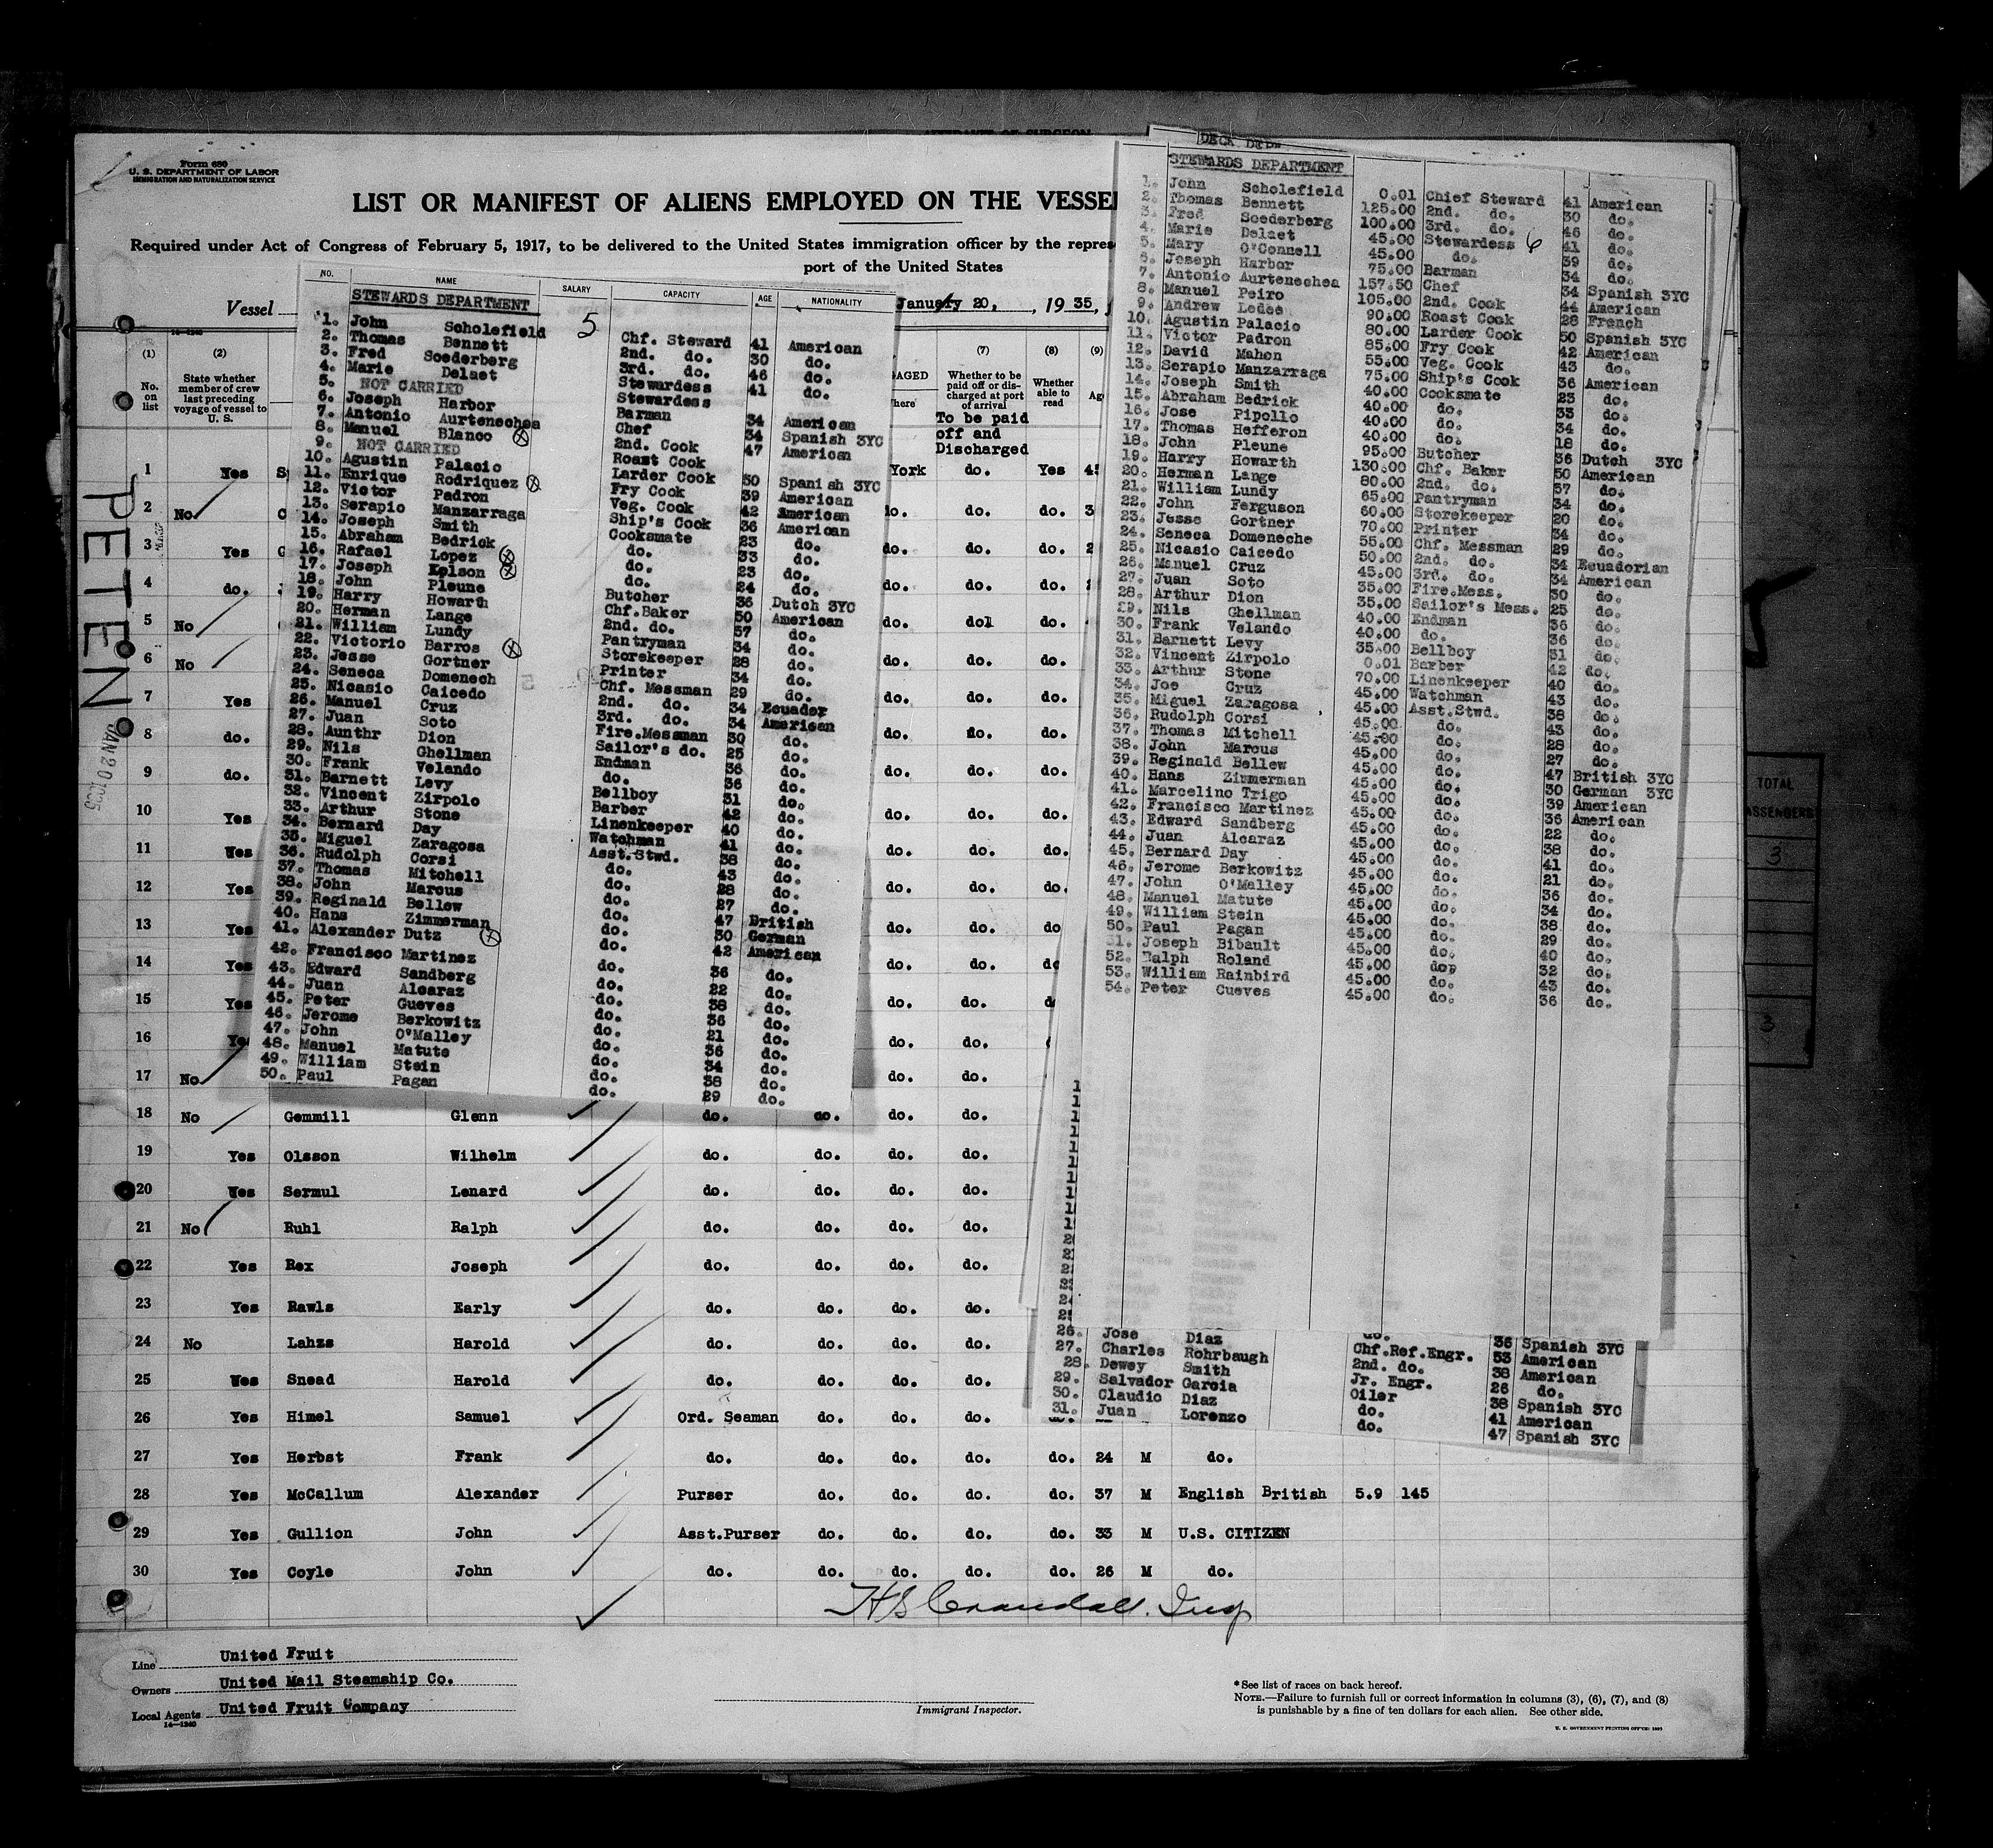 Form 680
U. S. DEPARTMENT OF LABOR
IMMIGRATION AND NATURALIZATION SERVICE
LIST OR MANIFEST OF ALIENS EMPLOYED ON THE VESSEL
Required under Act of Congress of February 5, 1917, to be delivered to the United States immigration officer by the repres
port of the United States
Vessel
January 20, , 1935,
(1) (2) (7) (8) (9)
No. on list
State whether member of crew last preceding voyage of vessel to U. S.
Whether to be paid off or discharged at port of arrival
Whether able to read
To be paid
off and
Discharged
PETEN
JAN 20 1935
NO. NAME SALARY CAPACITY AGE NATIONALITY
STEWARDS DEPARTMENT 5
1. John Scholefield Chf. Steward 41 American
2. Thomas Bennett 2nd. do. 30 do.
3. Fred Soederberg 3rd. do. 46 do.
4. Marie Delaet Stewardess 41 do.
5. NOT CARRIED Stewardess
6. Joseph Harbor Barman 34 American
7. Antonio Aurtenechea Chef 34 Spanish 3YC
8. Manuel Blanco 2nd. Cook 47 American
9. NOT CARRIED Roast Cook
10. Agustin Palacio Larder Cook 50 Spanish 3YC
11. Enrique Rodriquez Fry Cook 39 American
12. Victor Padron Veg. Cook 42 American
13. Serapio Manzarraga Ship's Cook 36 American
14. Joseph Smith Cooksmate 23 do.
15. Abraham Bedrick do. 33 do.
16. Rafael Lopez do. 23 do.
17. Joseph Kolson do. 24 do.
18. John Pleune Butcher 36 Dutch 3YC
19. Harry Howarth Chf.Baker 50 American
20. Herman Lange 2nd. do. 57 do.
21. William Lundy Pantryman 34 do.
22. Victorio Barros Storekeeper 28 do.
23. Jesse Gortner Printer 34 do.
24. Seneca Domenech Chf. Messman 29 do.
25. Nicasio Caicedo 2nd. do. 34 Ecuador
26. Manuel Cruz 3rd. do. 34 American
27. Juan Soto Fire.Messman 30 do.
28. Aunthr Dion Sailor's do. 25 do.
29. Nils Ghellman Endman 36 do.
30. Frank Velando do. 36 do.
31. Barnett Levy Bellboy 31 do.
32. Vincent Zirpolo Barber 42 do.
33. Arthur Stone Linenkeeper 40 do.
34. Bernard Day Watchman 41 do.
35. Miguel Zaragosa Asst.Stwd. 38 do.
36. Rudolph Corsi do. 43 do.
37. Thomas Mitchell do. 28 do.
38. John Marcus do. 27 do.
39. Reginald Bellew do. 47 British
40. Hans Zimmerman do. 30 German
41. Alexander Dutz do. 42 American
42. Francisco Martinez do. 36 do.
43. Edward Sandberg do. 22 do.
44. Juan Alcaraz do. 38 do.
45. Peter Gueves do. 36 do.
46. Jerome Berkowitz do. 21 do.
47. John O'Malley do. 36 do.
48. Manuel Matute do. 34 do.
49. William Stein do. 38 do.
50. Paul Pagan do. 29 do.
STEWARDS DEPARTMENT
1. John Scholefield 0.01 Chief Steward 41 American
2. Thomas Bennett 125.00 2nd. do. 30 do.
3. Fred Soederberg 100.00 3rd. do. 46 do.
4. Marie Delaet 45.00 Stewardess 6 41 do.
5. Mary O'Connell 45.00 do. 39 do.
6. Joseph Harbor 75.00 Barman 34 do.
7. Antonio Aurtenechea 157.50 Chef 34 Spanish 3YC
8. Manuel Peiro 105.00 2nd. Cook 44 American
9. Andrew Ledee 90.00 Roast Cook 28 French
10. Agustin Palacio 80.00 Larder Cook 50 Spanish 3YC
11. Victor Padron 85.00 Fry Cook 42 American
12. David Mahon 55.00 Veg. Cook 43 do.
13. Serapio Manzarraga 75.00 Ship's Cook 36 American
14. Joseph Smith 40.00 Cooksmate 23 do.
15. Abraham Bedrick 40.00 do. 33 do.
16. Jose Pipollo 40.00 do. 34 do.
17. Thomas Hefferon 40.00 do. 18 do.
18. John Pleune 95.00 Butcher 36 Dutch 3YC
19. Harry Howarth 130.00 Chf. Baker 50 American
20. Herman Lange 80.00 2nd. do. 57 do.
21. William Lundy 65.00 Pantryman 34 do.
22. John Ferguson 60.00 Storekeeper 20 do.
23. Jesse Gortner 70.00 Printer 34 do.
24. Seneca Domeneche 55.00 Chf. Messman 29 do.
25. Nicasio Caicedo 50.00 2nd. do. 34 Ecuadorian
26. Manuel Cruz 45.00 3rd. do. 34 American
27. Juan Soto 35.00 Fire.Mess. 30 do.
28. Arthur Dion 35.00 Sailor's Mess. 25 do.
29. Nils Ghellman 40.00 Endman 36 do.
30. Frank Velando 40.00 do. 36 do.
31. Barnett Levy 35.00 Bellboy 31 do.
32. Vincent Zirpolo 0.01 Barber 42 do.
33. Arthur Stone 70.00 Linenkeeper 40 do.
34. Joe Cruz 45.00 Watchman 43 do.
35. Miguel Zaragosa 45.00 Asst.Stwd. 38 do.
36. Rudolph Corsi 45.00 do. 43 do.
37. Thomas Mitchell 45.00 do. 28 do.
38. John Marcus 45.00 do. 27 do.
39. Reginald Bellew 45.00 do. 47 British 3YC
40. Hans Zimmerman 45.00 do. 30 German 3YC
41. Marcelino Trigo 45.00 do. 39 American
42. Francisco Martinez 45.00 do. 36 American
43. Edward Sandberg 45.00 do. 22 do.
44. Juan Alcaraz 45.00 do. 38 do.
45. Bernard Day 45.00 do. 41 do.
46. Jerome Berkowitz 45.00 do. 21 do.
47. John O'Malley 45.00 do. 36 do.
48. Manuel Matute 45.00 do. 34 do.
49. William Stein 45.00 do. 38 do.
50. Paul Pagan 45.00 do. 29 do.
51. Joseph Bibault 45.00 do. 40 do.
52. Ralph Roland 45.00 do. 32 do.
53. William Rainbird 45.00 do. 43 do.
54. Peter Cueves 45.00 do. 36 do.
26. Jose Diaz do. 36 Spanish 3YC
27. Charles Rohrbaugh Chf.Ref.Engr. 53 American
28. Dewey Smith 2nd. do. 38 American
29. Salvador Garcia Jr. Engr. 26 do.
30. Claudio Diaz Oiler 38 Spanish 3YC
31. Juan Lorenzo do. 41 American
do. 47 Spanish 3YC
1 Yes York do. Yes
2 No do. do.
3 Yes do. do. do.
4 do. do. do. do.
5 No do. do1 do.
6 No do. do. do.
7 Yes do. do. do.
8 do. do. do. do.
9 do. do. do. do.
10 Yes do. do. do.
11 Yes do. do. do.
12 Yes do. do. do.
13 Yes do. do. do
14 Yes do. do.
15 Yes do. do.
16 Yes do. do.
17 No do. do.
18 No Gemmill Glenn do. do. do. do.
19 Yes Olsson Wilhelm do. do. do. do.
20 Yes Sermul Lenard do. do. do. do.
21 No Ruhl Ralph do. do. do. do.
22 Yes Rex Joseph do. do. do. do.
23 Yes Rawls Early do. do. do. do.
24 No Lahzs Harold do. do. do. do.
25 Yes Snead Harold do. do. do. do.
26 Yes Himel Samuel Ord. Seaman do. do. do.
27 Yes Herbst Frank do. do. do. do. do. 24 M do.
28 Yes McCallum Alexander Purser do. do. do. do. 37 M English British 5.9 145
29 Yes Gullion John Asst.Purser do. do. do. do. 33 M U.S. CITIZEN
30 Yes Coyle John do. do. do. do. do. 26 M do.
H S Crandall. Insp
Line United Fruit
Owners United Mail Steamship Co.
Local Agents United Fruit Company
14—1240
Immigrant Inspector.
*See list of races on back hereof.
NOTE.—Failure to furnish full or correct information in columns (3), (6), (7), and (8)
is punishable by a fine of ten dollars for each alien. See other side.
TOTAL
3
3